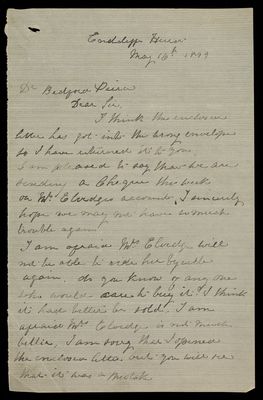 Endcliffe House
May 16th 1899
Dr Bedford Pierce
Dear Sir,
I think the enclosed
letter has got into the wrong envelope
so I have returned it to you.
I am pleased to say that we are
sending a Cheque this week
on Mrs Elvidges account, I sincerely
hope we may not have so much
trouble again.
I am afraid Mrs Elvidge will
not be able to ride her bycicle
again. do you know of any one
who would care to buy it? I think
it had better be sold. I am
afraid Mrs Elvidge is not much
better, I am sorry that I opened
the enclosed letter but you will see
that it was a mistake